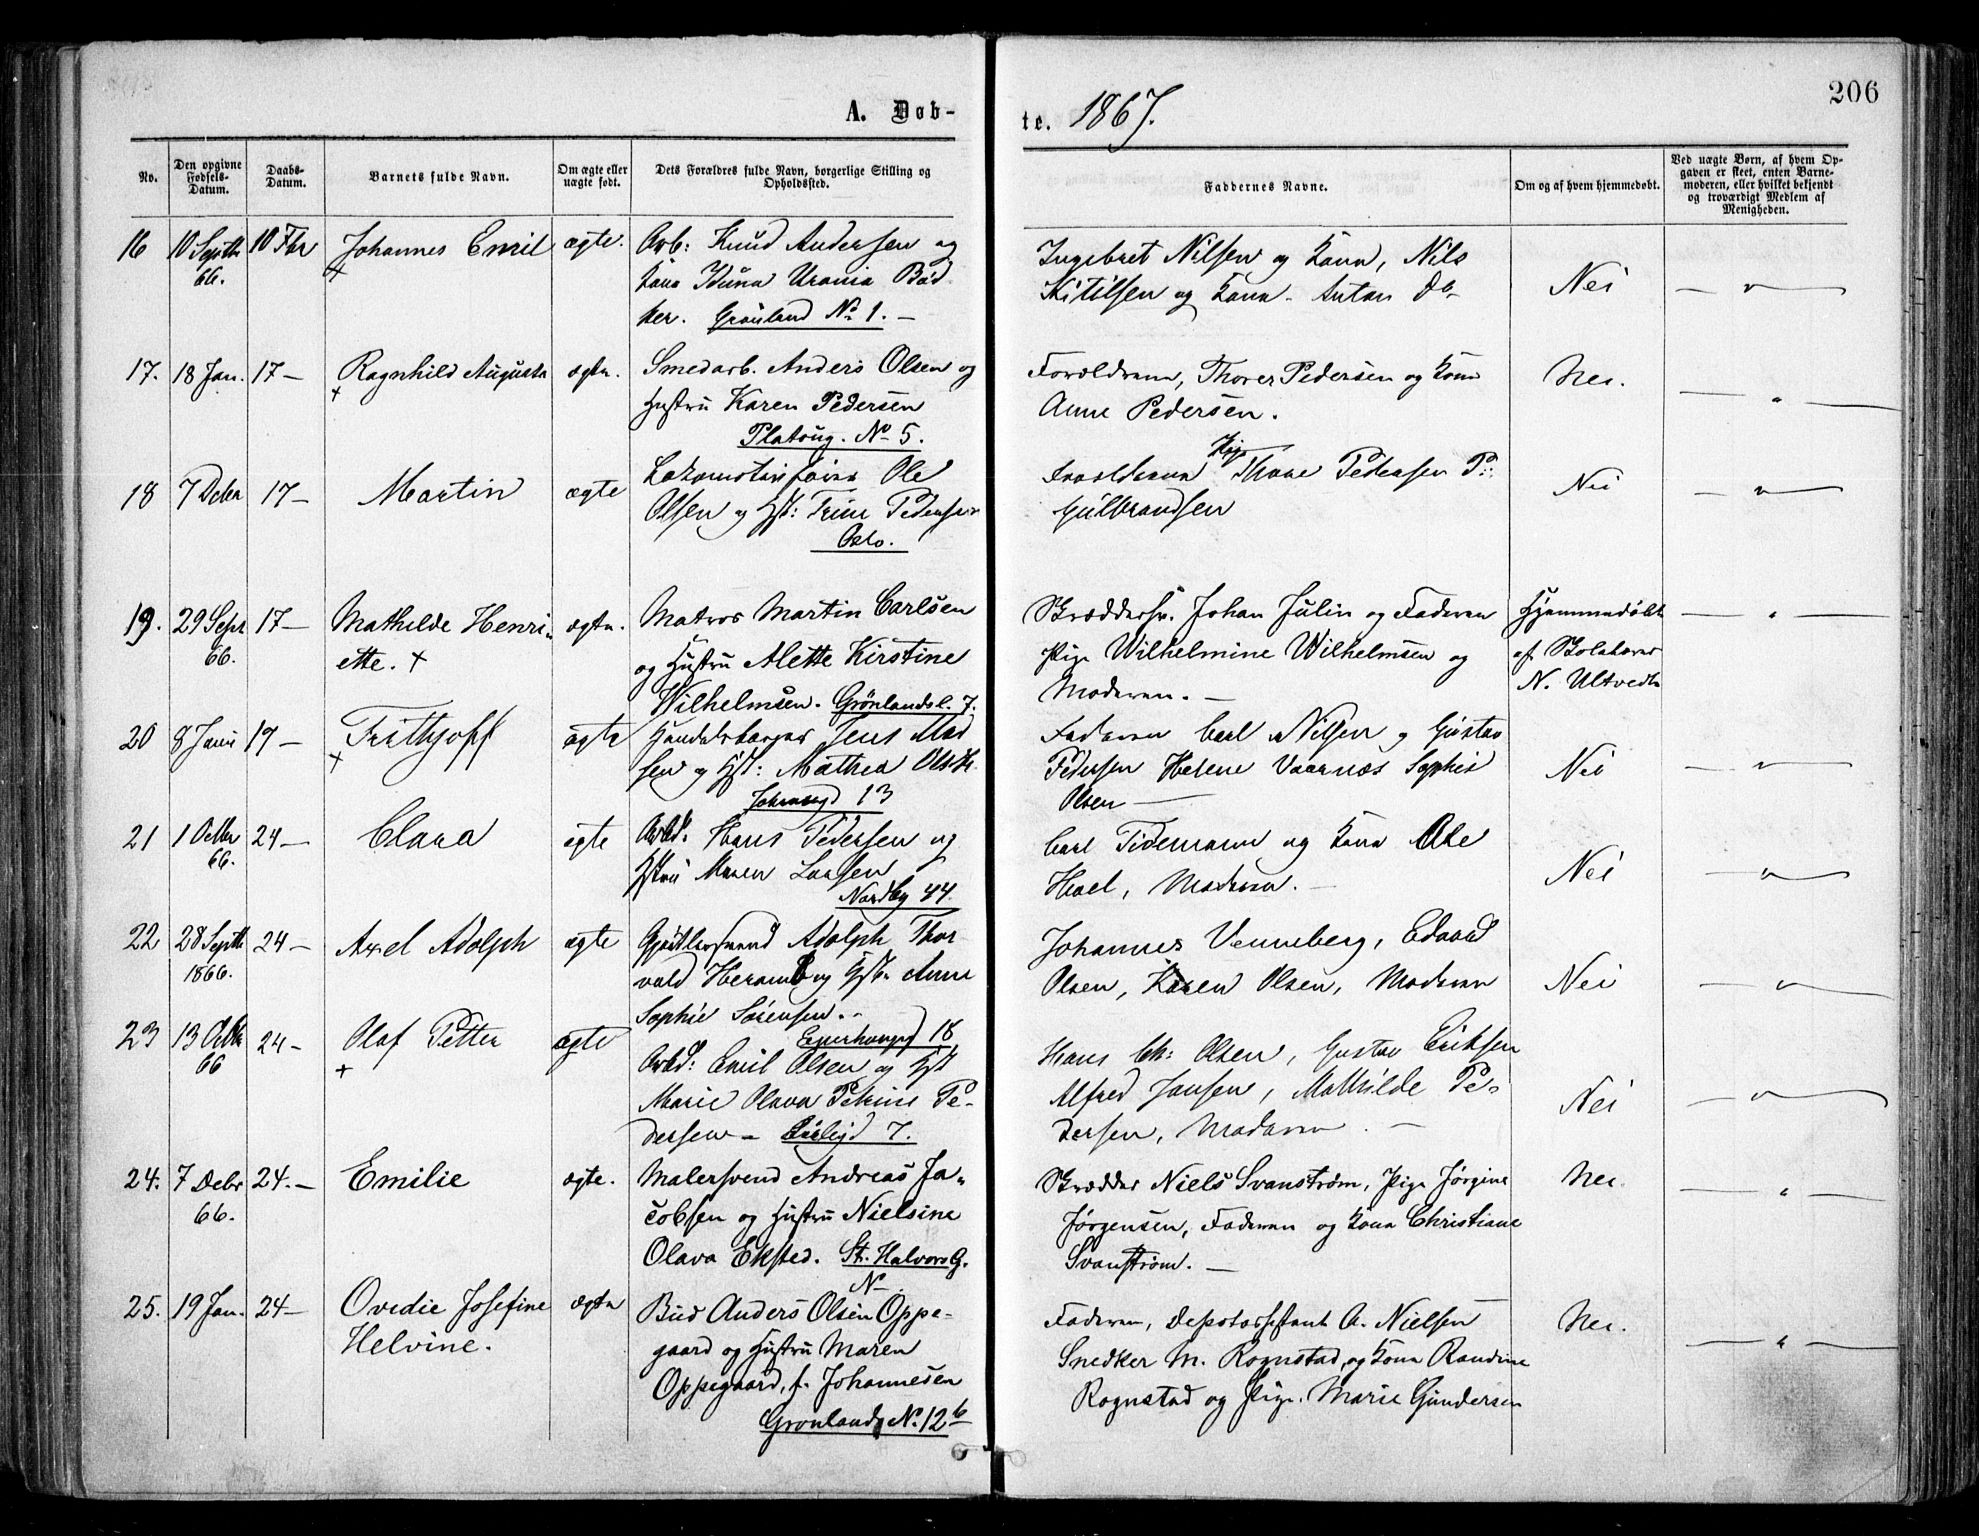 206
A. Døb-
te. 1867.
No.
Den opgivne Fødsels-Datum.
Daabs-Datum.
Barnets fulde Navn.
Om ægte eller uægte født.
Dets Forældres fulde Navn, borgerlige Stilling og Opholdssted.
Faddernes Navne.
Om og af hvem hjemmedøbt.
Ved uægte Børn, af hvem Opgaven er skeet, enten Barnemoderen, eller hvilket bekjendt og troværdigt Medlem af Menigheden.
16 10 Septb 66. 10 Fbr Johannes Emil + ægte.
Arb: Knud Andersen og
Kone Iduna Urania Bød
ker. Grönland No 1. —
Ingebret Nilsen og Kone, Nils
Kitilsen og Kone. Anton do-
Nei — " —
17. 18 Jan. 17 — Ragnhild Augusta + ægte.
Smedarb. Anders Olsen og
Hustru Karen Pedersen
Platoug. No 5.
Forældrene, Thorer Pedersen og Kone
Anne Pedersen.
Nei. — " —
18 7 Debr 17 — Martin ægte
Lokomotivfører Ole
Olsen og Hst: Trine Pedersen
Oslo.
Forældrene Pige Thone Pedersen P:
Gulbrandsen
Nei — " —
19. 29 Sept 66. 17 — Mathilde Henri-
ette. + ægte.
Matros Martin Carlsen
og Hustru Alette Kirstine
Wilhelmsen. Grønlandsl. 7.
Skræddersv. Johan Julin og Faderen
Pige Wilhelmine Wilhelmsen og
Moderen. —
Hjemmedøbt
af Skolelærer
N. Ultvedt — " —
20 8 Janu 19 — Frithjoff + ægte
Handelsborger Jens Mad
sen og Hst: Mathea Olsen.
13
Faderen Carl Nilsen og Gustav
Pedersen Helene Vaarnæs Sophie
Olsen —
Nei — " —
21 1 Octbr 66. 24 — Clara ægte
Arbd: Hans Pedersen og
Hstru Maren Larsen
Nordby 44.
Carl Tidemann og Kone Ole
Hoel, Moderen. —
Nei — " —
22 28 Septb 1866. 24 — Axel Adolph ægte
Gjørtlersvend Adolph Thor
vald Heramb og Hst. Anne
Sophie Sørensen. -
Enerhaugg 18
Johannes Venneberg, Edvard
Olsen, Karen Olsen, Moderen
Nei — " —
23 13 Octb 66 24 — Olaf Petter + ægte
Arbd: Emil Olsen og Hst
Marie Olava Petrine Pe-
dersen — 7.
Hans Ch: Olsen, Gustav Eriksen
Alfred Jansen, Mathilde Pe-
dersen, Moderen. —
Nei — " —
24. 7 Debr 66. 24. — Emilie ægte.
Malersvend Andreas Ja-
cobsen og Hustru Nielsine
Olava Eksted. St. Halvors G.
No
Skrædder Niels Svanstrøm, Pige Jørgine
Jørgensen, Faderen og Kone Christiane
Svanstrøm. —
Nei. — " —
25. 19 Jan. 24 — Ovedie Josefine
Helvine. ægte
Bud Anders Olsen Oppe-
gaard og Hustru Maren
Oppegaard, f. Johannesen
Grønlandg No. 12 b
Faderen, Depotassistent A. Nielsen
Snedker M. Rognstad, og Kone Randine
Rognstad og Pige. Marie Gundersen
Nei. — " —